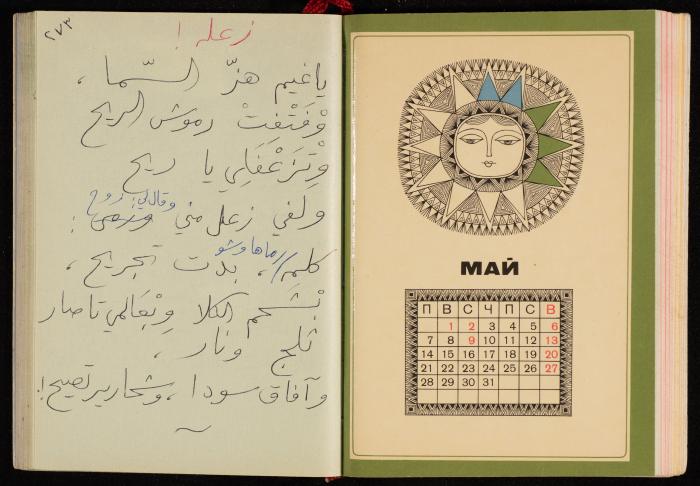 ٢٧٣
زعله !
يا غيم هزّ السّما ،
وْفَتْفِتْ رموش الريح
وْتِزَعْفَلِي يا ريح
ولفي زعل مني وقال لي: روح :
كلمِه/ ماها وشو ، بدت تجريح ،
الكلا تاصار
ثلج ونار ،
وآفاق سودا ، وشحارير تصيح !
МАЙ
П В С Ч П С В
1 2 3 4 5 6
7 8 9 10 11 12 13
14 15 16 17 18 19 20
21 22 23 24 25 26 27
28 29 30 31